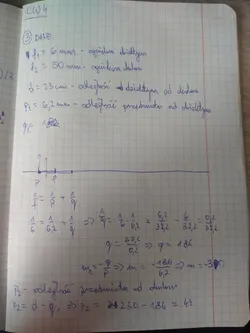 CW 4
③ DANE
f₁ = 6 mm - ogniskowa obiektywu
f₂ = 50 mm - ogniskowa
b = 23 cm - odległość obiektywu od
p₁ = 6,2 mm - odległość przedmiotu od obiektywu
q₁ =
1/f = 1/p + 1/q
1/6 = 1/6,2 + 1/q => 1/q = 1/6 - 1/6,2 = 6,2/37,2 - 6/37,2 = 0,2/37,2
q = 37,2/0,2 => q = 186
m = -q/p => m = -186/6,2 => m = -30
p₂ = odległość przedmiotu od
p₂ = d - q₁ => p₂ = 230 - 186 = 44